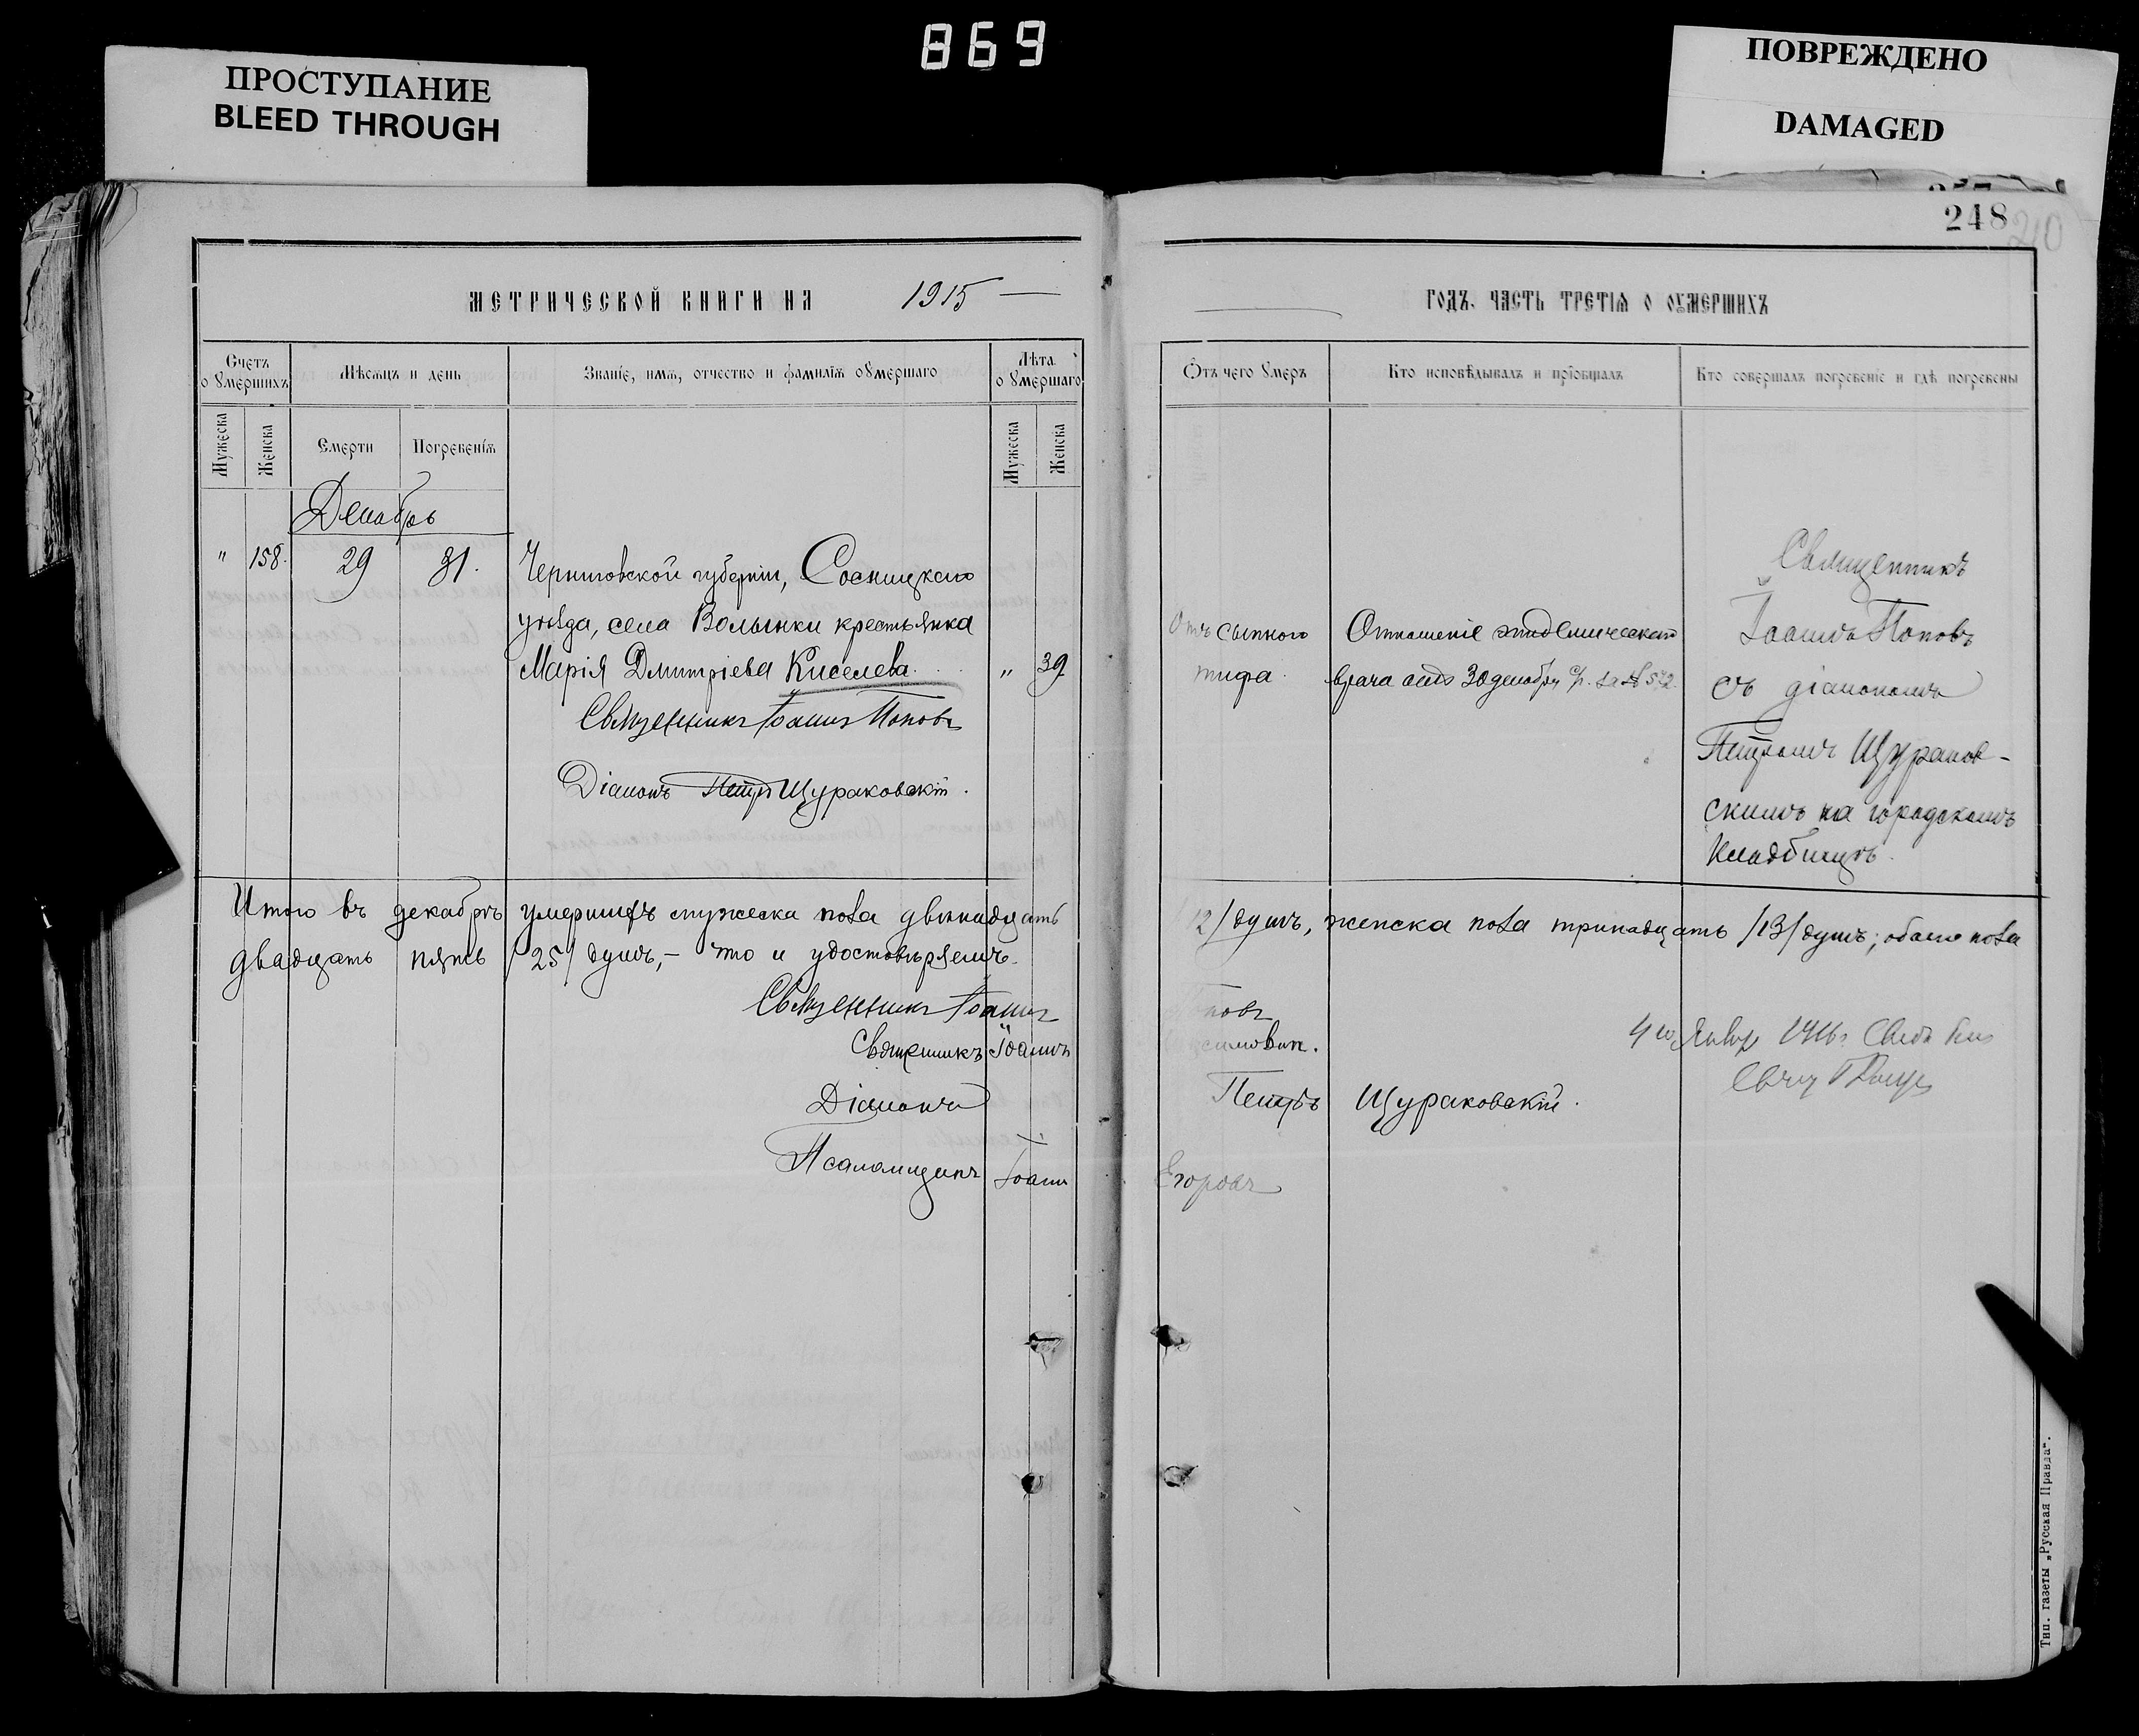 869
ПРОСТУПАНИЕ
BLEED THROUGH
ПОВРЕЖДЕНО
DAMAGED
248
210
МЕТРИЧЕСКОЙ КНИГИ НА 1915
ГОДЪ. ЧАСТЬ ТРЕТІѦ О ОУМЕРШИХЪ
Счетъ о Умершихъ
Мѣсяцъ и день
Званіе, имѧ, отчество и фамиліѧ оумершаго
Лѣта о Умершаго
Мужеска
Женска
Смерти
Погребеніѧ
Мужеска
Женска
Ѿтъ чего Умеръ
Кто исповѣдывалъ и пріобщалъ
Кто совершалъ погребеніе и гдѣ погребены
Декабрь
" 158. 29 31.
Черниговской губерніи, Сосницкаго
уѣзда, села Волынки крестьянка
Марія Дмитріева Киселева. " 39
Священникъ Іоаннъ Поповъ
Діаконъ Петръ Щураковскій.
Отъ сыпного
тифа.
Отношеніе эпидемическаго
врача отъ 30 декабря с/г. за № 572.
Священникъ
Іоаннъ Поповъ
съ діакономъ
Петромъ Щураков-
скимъ на городскомъ
кладбищѣ.
Итого въ декабрѣ умершихъ мужеска пола двѣнадцать /12/ душъ, женска пола тринадцать /13/ душъ; обоего пола
двадцать пять /25/ душъ,- что и удостовѣряемъ.
Священникъ Іоаннъ Поповъ
Священникъ Іоаннъ
Діаконъ Петръ Щураковскій.
Псаломщикъ Іоаннъ Егоровъ
4го Января 1916г.
Тип. газеты „Русская Правда“.